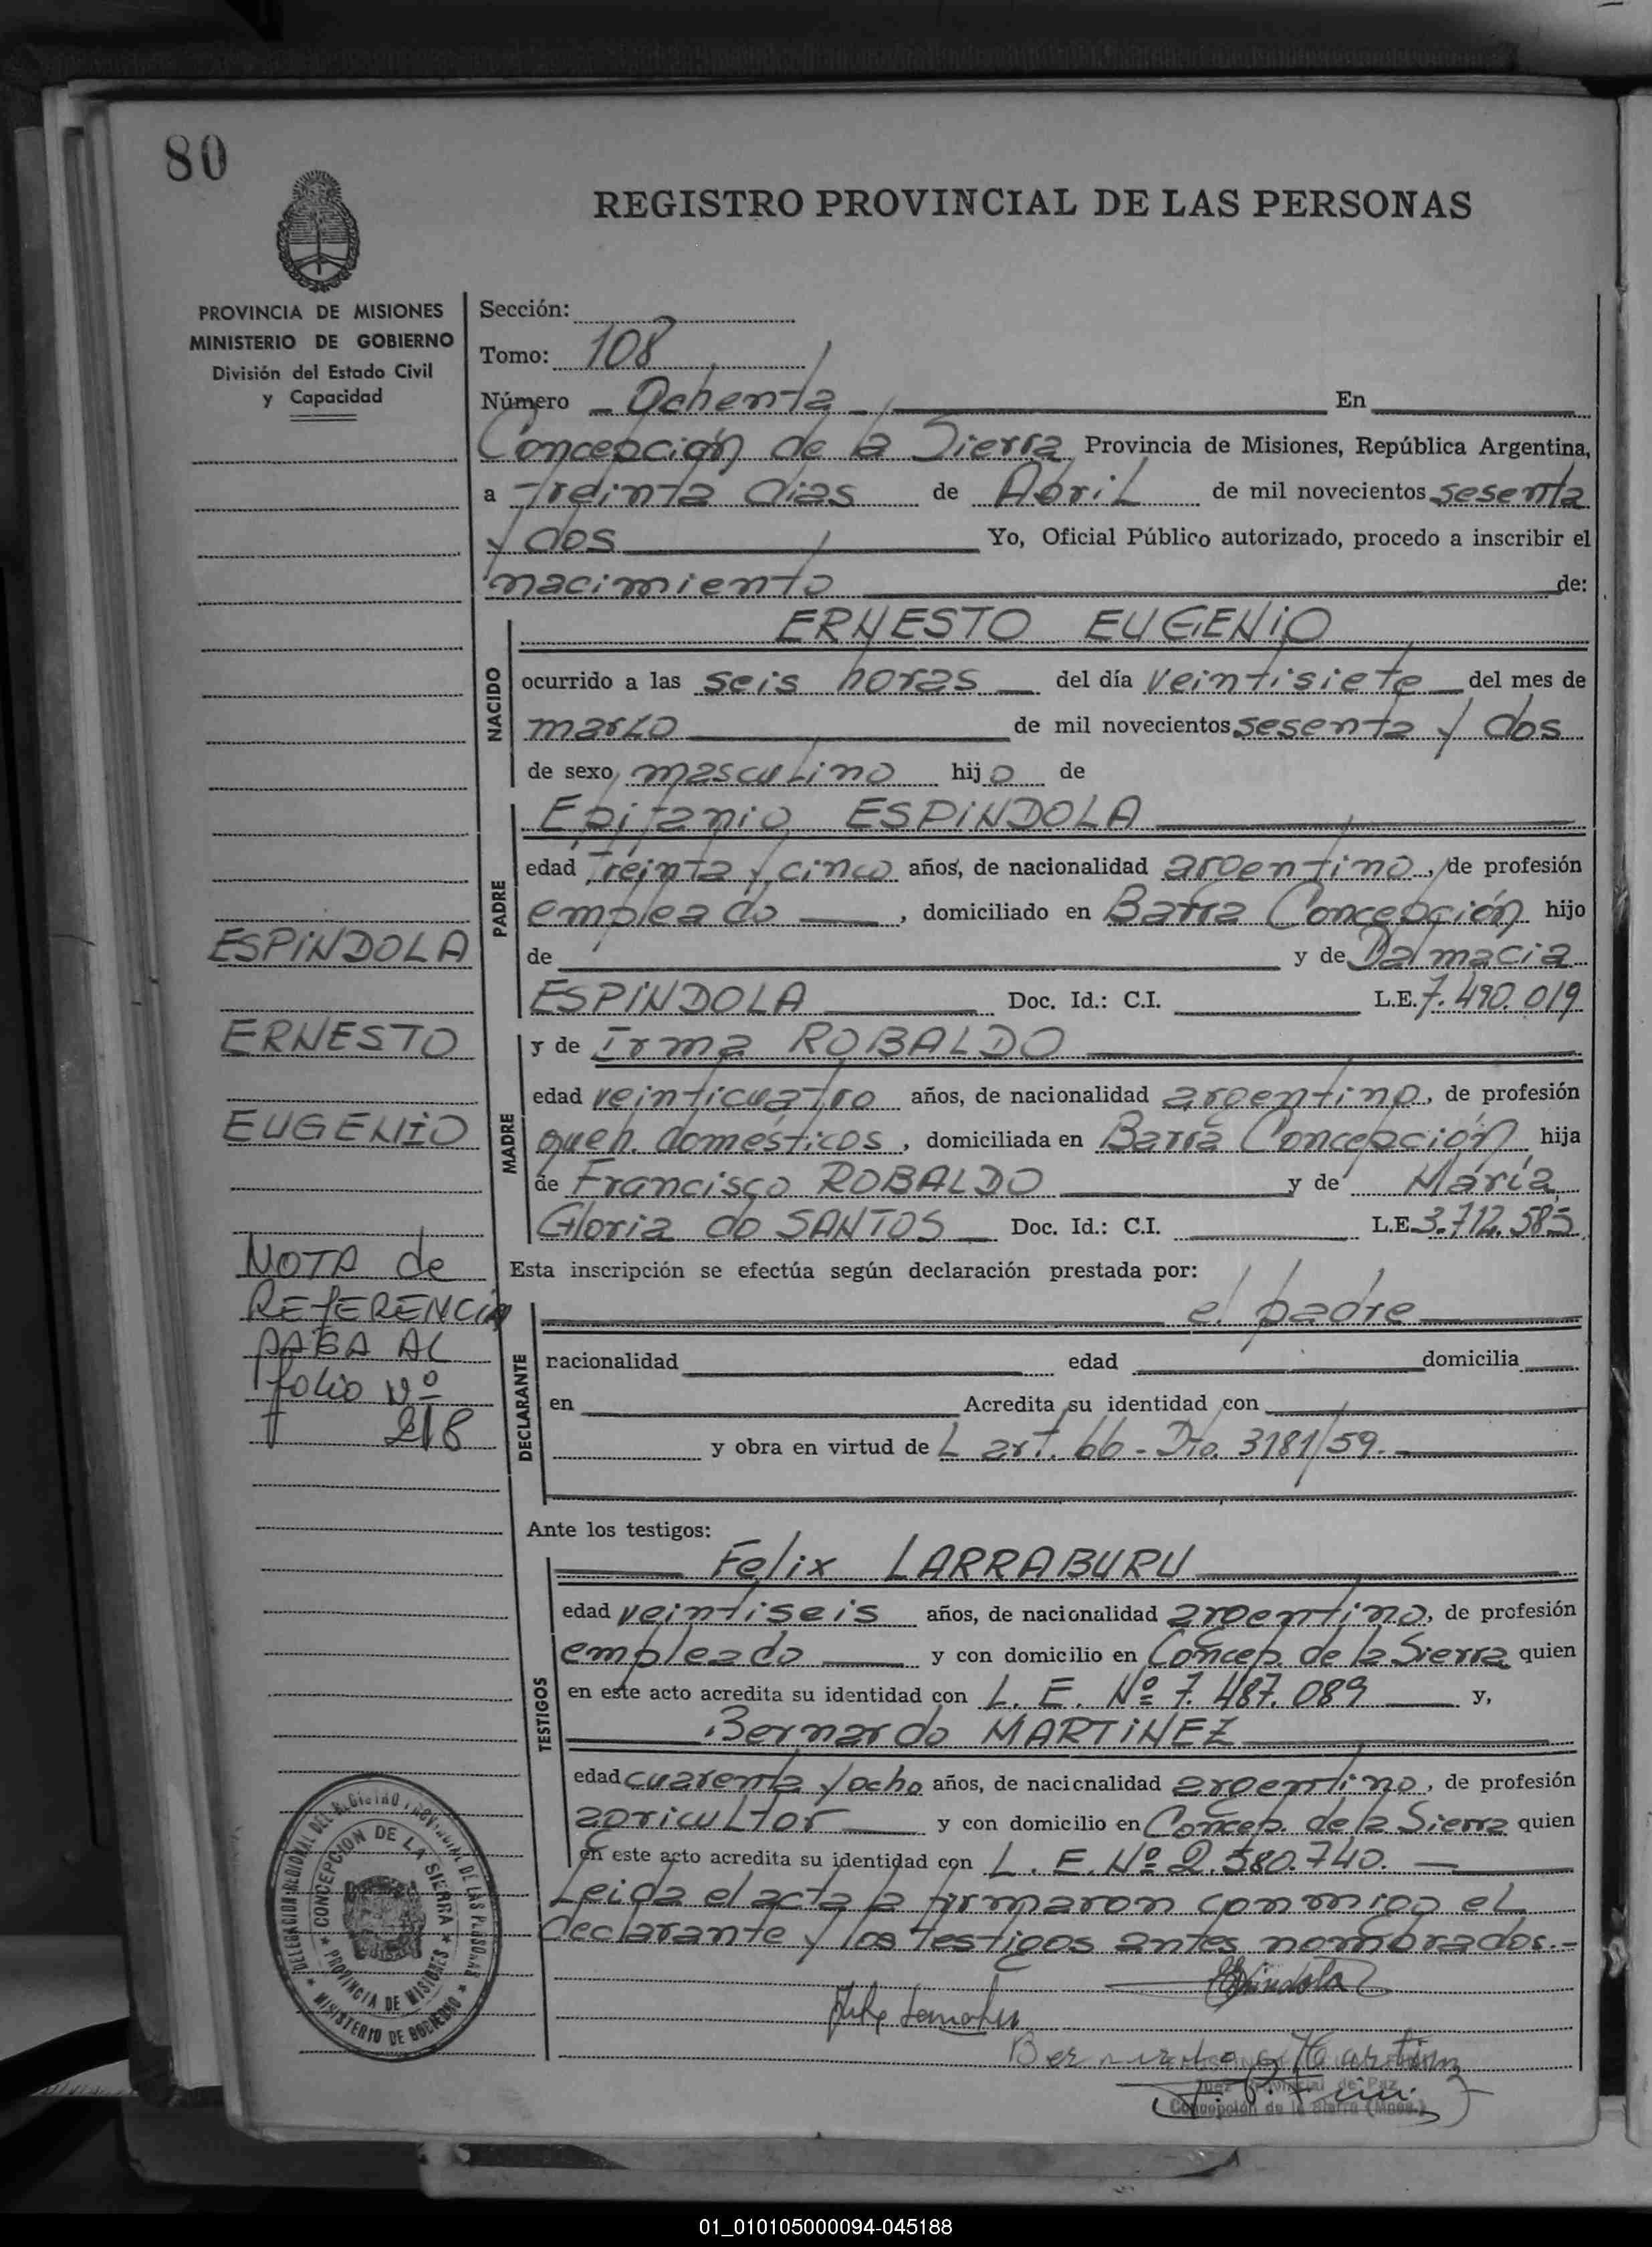 80
REGISTRO PROVINCIAL DE LAS PERSONAS
PROVINCIA DE MISIONES
MINISTERIO DE GOBIERNO
División del Estado Civil
y Capacidad
Sección:
Tomo: 108
Número Ochenta En
Concepción de la Sierra Provincia de Misiones, República Argentina,
a treinta dias de Abril de mil novecientos sesenta
y dos Yo, Oficial Público autorizado, procedo a inscribir el
nacimiento de:
ERNESTO EUGENIO
NACIDO
ocurrido a las seis horas del día veintisiete del mes de
marzo de mil novecientos sesenta y dos
de sexo masculino hijo de
Epifanio ESPINDOLA
PADRE
edad treinta y cinco años, de nacionalidad argentino, de profesión
empleado, domiciliado en Barra Concepción hijo
de y de Dalmacia
ESPINDOLA Doc. Id.: C.I. L.E. 7.490.019
y de Irma ROBALDO
MADRE
edad veinticuatro años, de nacionalidad argentino, de profesión
queh. domésticos, domiciliada en Barra Concepción hija
de Francisco ROBALDO y de María
Gloria do SANTOS Doc. Id.: C.I. L.E. 3.712.585
ESPINDOLA
ERNESTO
EUGENIO
NOTA de
REFERENCIA
PASA AL
folio Nº
218
Esta inscripción se efectúa según declaración prestada por:
el padre
DECLARANTE
nacionalidad edad domicilia
en Acredita su identidad con
y obra en virtud de L art. 66 - Dto. 3181/59.-
Ante los testigos:
Felix LARRABURU
TESTIGOS
edad veintiseis años, de nacionalidad argentino, de profesión
empleado y con domicilio en Concep. de la Sierra quien
en este acto acredita su identidad con L. E. Nº 7.487.089 y,
Bernardo MARTINEZ
edad cuarenta y ocho años, de nacicnalidad argentino, de profesión
agricultor y con domicilio en Concep. de la Sierra quien
en este acto acredita su identidad con L. E. Nº 2.580.740.
Leida el acta la firmaron conmigo el
declarante y los testigos antes nombrados.-
Espindola
Bernardo Martinez
Juez Provincial de Paz
Concepción de la Sierra (Mnes.)
DELEGACION REGIONAL DEL REGISTRO PROVINCIAL DE LAS PERSONAS
CONCEPCION DE LA SIERRA
PROVINCIA DE MISIONES
MINISTERIO DE GOBIERNO
01_010105000094-045188